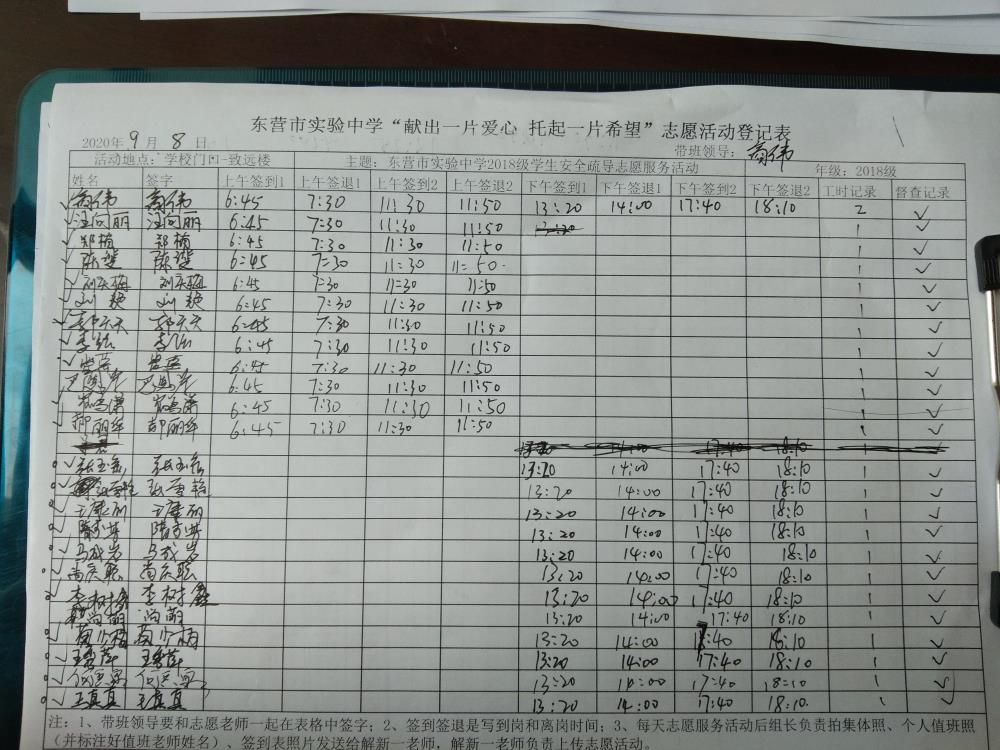 东营市实验中学“献出一片爱心 托起一片希望”志愿活动登记表
2020年9月8日 带班领导：高伟
活动地点：学校门口-致远楼 主题：东营市实验中学2018级学生安全疏导志愿服务活动 年级：2018级
姓名 签字 上午签到1 上午签退1 上午签到2 上午签退2 下午签到1 下午签退1 下午签到2 下午签退2 工时记录 督查记录
高伟 高伟 6:45 7:30 11:30 11:50 13:20 14:00 17:40 18:10 2 ✓
汪向丽 汪向丽 6:45 7:30 11:30 11:50 13:20 1 ✓
郑楠 郑楠 6:45 7:30 11:30 11:50 1 ✓
陈斐 陈斐 6:45 7:30 11:30 11:50 1 ✓
6:45 7:30 11:30 11:50 1 ✓
6:45 7:30 11:30 11:50 1 ✓
郭天天 郭天天 6:45 7:30 11:30 11:50 1 ✓
6:45 7:30 11:30 11:50 1 ✓
6:45 7:30 11:30 11:50 1 ✓
6:45 7:30 11:30 11:50 1 ✓
6:45 7:30 11:30 11:50 1 ✓
郝丽华 郝丽华 6:45 7:30 11:30 11:50 1 ✓
13:20 14:00 17:40 18:10 1
13:20 14:00 17:40 18:10 1 ✓
13:20 14:00 17:40 18:10 1 ✓
王康丽 王康丽 13:20 14:00 17:40 18:10 1 ✓
13:20 14:00 17:40 18:10 1 ✓
马成岩 马成岩 13:20 14:00 17:40 18:10 1 ✓
尚庆聪 尚庆聪 13:20 14:00 17:40 18:10 1 ✓
李树鑫 李树鑫 13:20 14:00 17:40 18:10 1 ✓
尚萌 尚萌 13:20 14:00 17:40 18:10 1 ✓
13:20 14:00 17:40 18:10 1 ✓
王秀萍 王秀萍 13:20 14:00 17:40 18:10 1 ✓
13:20 14:00 17:40 18:10 1 ✓
王真真 王真真 13:20 14:00 17:40 18:10 1 ✓
注：1、带班领导要和志愿老师一起在表格中签字；2、签到签退是写到岗和离岗时间；3、每天志愿服务活动后组长负责拍集体照、个人值班照
（并标注好值班老师姓名）、签到表照片发送给解新一老师，解新一老师负责上传志愿活动。